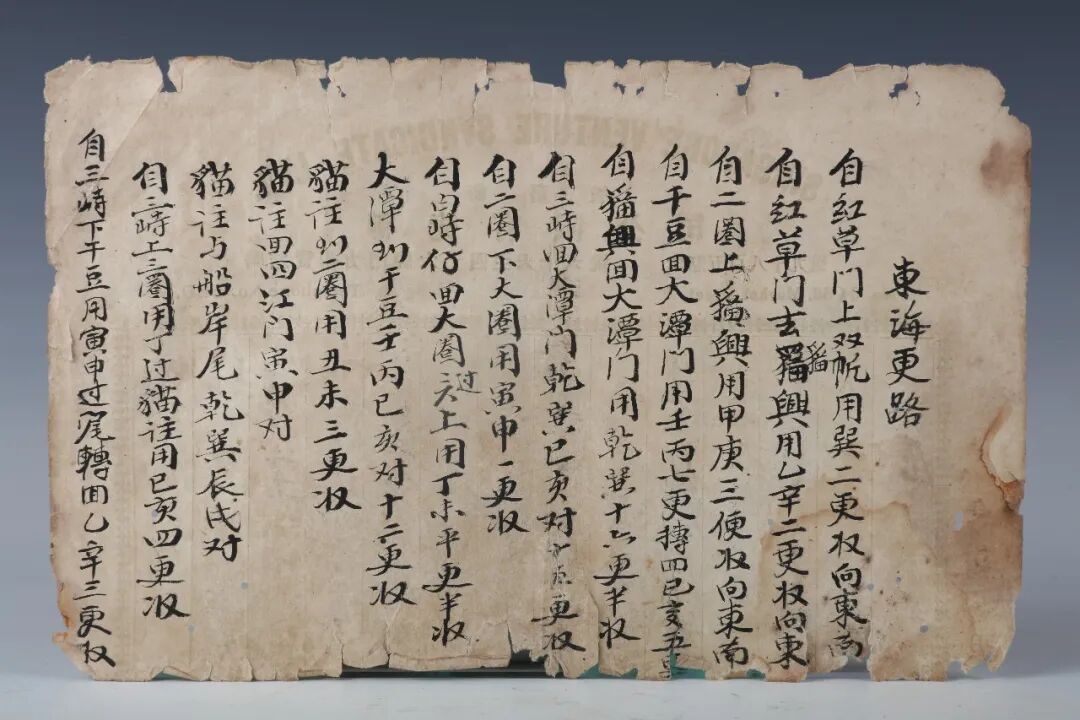 東海更路
自紅草门上双帆用巽二更收向東南
自紅草门去貓興用乙辛二更收向東
貓
自二圈上貓興用甲庚三便收向東南
自干豆回大潭门用壬丙七更轉回巳亥五更
自貓興回大潭门用乾巽十六更半收
自三峙回大潭门乾巽巳亥对更收
自二圈下大圈用寅申一更收
自白峙仔回大圈过上用丁未平更半收
大潭刈干豆壬丙巳亥对十二更收
貓注刈二圈用丑未三更收
貓注回四江门寅申对
貓注与船岸尾乾巽辰戌对
自三峙上三圈用丁过貓注用巳亥四更收
自三峙下干豆用寅申过尾轉回乙辛三更收
VENTURE SYNDICATE